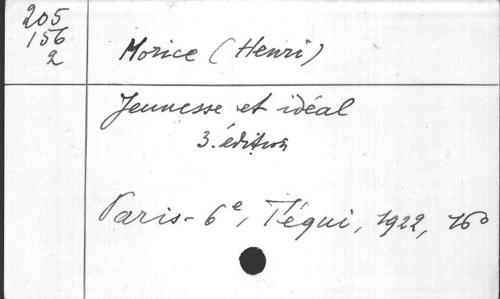 205
156
2
Morice (Henri)
Jeunesse et idéal
3. édition
Paris-6e, Téqui, 1922, 16°